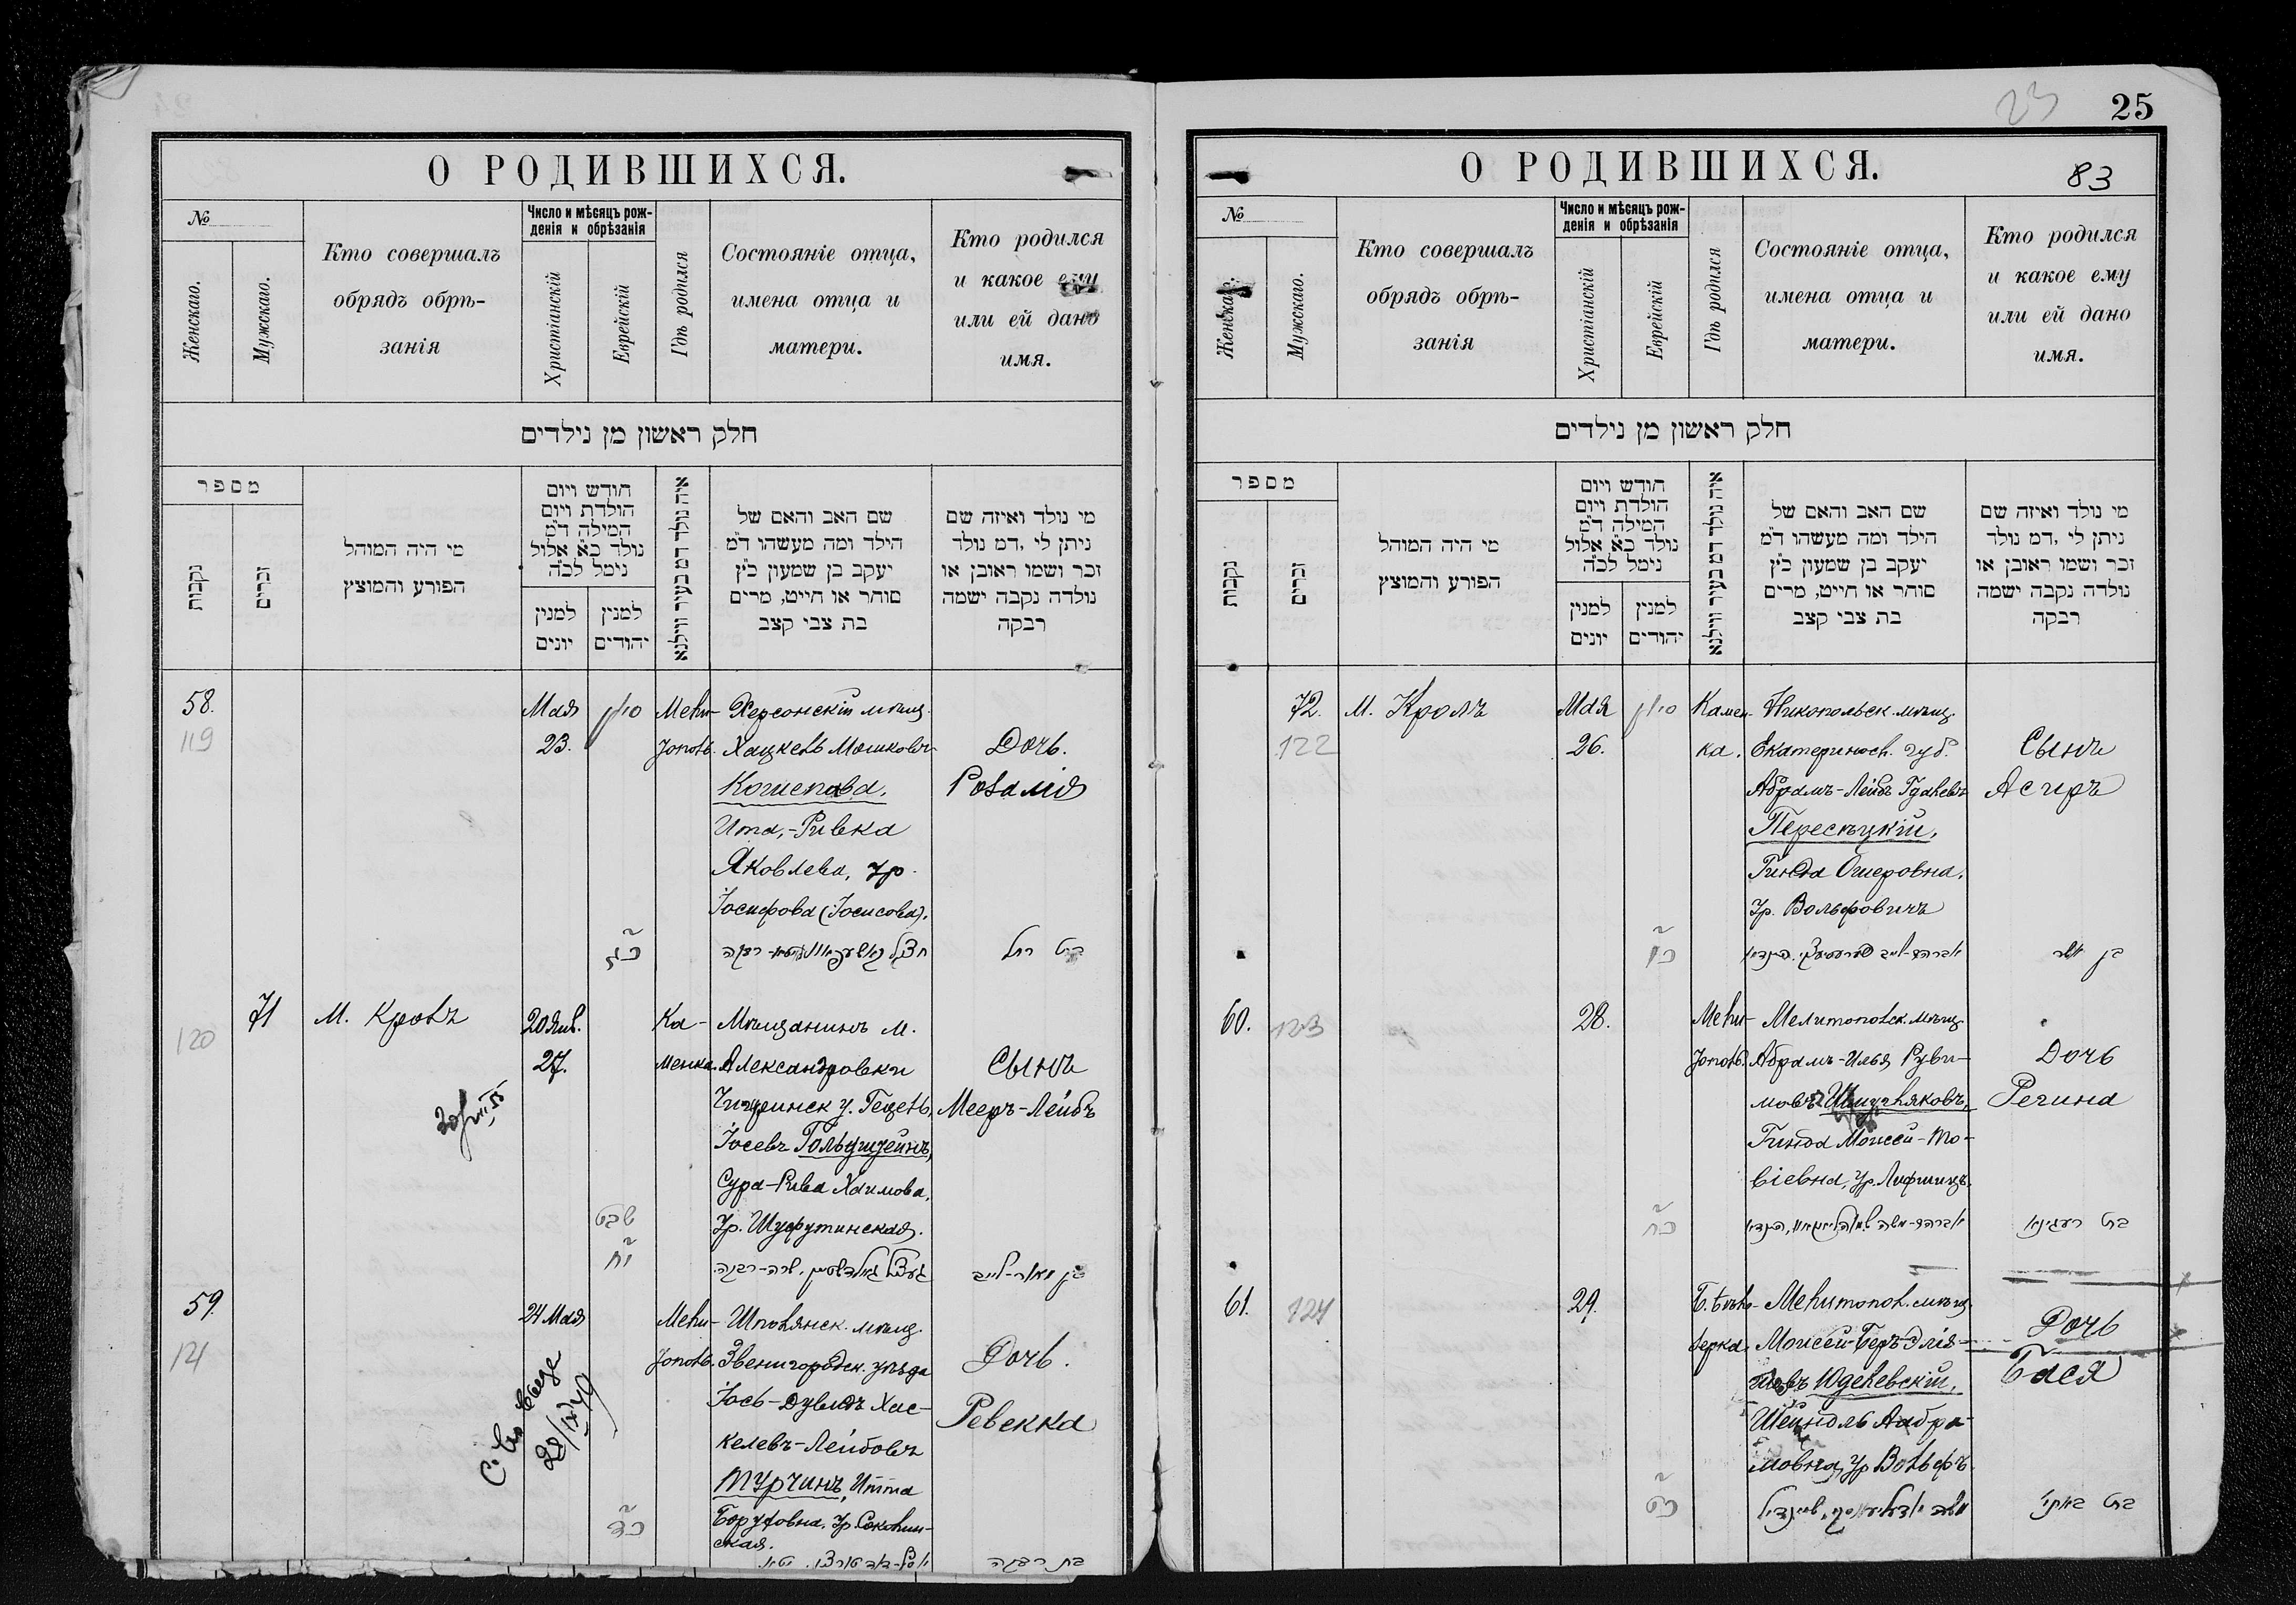 О РОДИВШИХСЯ.
№
Женскаго.
Мужскаго.
Кто совершалъ
обрядъ обрѣ-
занія
Число и мѣсяцъ рож-
денія и обрѣзанія
Христіанскій
Еврейскій
Гдѣ родился
Состояніе отца,
имена отца и
матери.
Кто родился
и какое ему
или ей дано
имя.
חלק ראשון מן נילדים
מספר
נקבות
זכרים
מי היה המוהל
הפורע והמוצץ
חודש ויום
הולדת ויום
המילה ד״מ
נולד כ״א אלול
נימל לכ״ה
למנין
יונים
למנין
יהודים
איה נולד דמ בעיר ווילנא
שם האב והאם של
הילד ומה מעשהו ד״מ
יעקב בן שמעון כ״ץ
סוחר או חייט, מרים
בת צבי קצב
מי נולד ואיזה שם
ניתן לי ,דמ נולד
זכר ושמו ראובן או
נולדה נקבה ישמה
רבקה
58.
119
Мая
23.
סיון
כ״ג
Мели-
тополь.
Херсонскій мѣщ.
Хацкель Мошковъ
Кошепава.
Ита,-Ривка
Яковлева, ур.
Іосифова (Іосисова).
Дочь.
Розалія
בת רחל
71
120
М. Кроль
20 Янв.
27.
שבט
י״ח
Ка-
менка.
Мѣщанинъ м.
Александровки
Чигиринск у. Гецель
Іосевъ Гольдштейнъ,
Сура-Рива Хаимова,
Ур. Шуфутинская.
געצל גאלדשטיין. שרה-רבקה.
Сынъ
Мееръ-Лейбъ
בן מאיר-לייב
59.
121
24 Мая
כ״ד
Мели-
тополь.
Шполянск. мѣщ.
Звенигородск. уѣзда
Іось-Дувидъ Хас-
келевъ-Лейбовъ
Турчинъ, Итта
Боруховна, ур. Соколин-
ская.
Дочь.
Ревекка
בת רבקה
23
25
О РОДИВШИХСЯ.
83
№
Женскаго.
Мужскаго.
Кто совершалъ
обрядъ обрѣ-
занія
Число и мѣсяцъ рож-
денія и обрѣзанія
Христіанскій
Еврейскій
Гдѣ родился
Состояніе отца,
имена отца и
матери.
Кто родился
и какое ему
или ей дано
имя.
חלק ראשון מן נילדים
מספר
נקבות
זכרים
מי היה המוהל
הפורע והמוצץ
חודש ויום
הולדת ויום
המילה ד״מ
נולד כ״א אלול
נימל לכ״ה
למנין
יונים
למנין
יהודים
איה נולד דמ בעיר ווילנא
שם האב והאם של
הילד ומה מעשהו ד״מ
יעקב בן שמעון כ״ץ
סוחר או חייט, מרים
בת צבי קצב
מי נולד ואיזה שם
ניתן לי ,דמ נולד
זכר ושמו ראובן או
נולדה נקבה ישמה
רבקה
72.
122
М. Кроль
Мая
26.
סיון
כ״ו
Камен-
ка.
Никопольск. мѣщ.
Екатеринос. губ.
Абрамъ-Лейбъ Гдалевъ
Пересѣцкій,
Гинда Ошеровна,
Ур. Вольфовичъ
Сынъ
Асиръ
בן אשר
60.
123
28.
כ״ח
Мели-
тополь.
Мелитопольск. мѣщ.
Абрамъ-Илья Руви-
мовъ
Гинда Моисей-То-
віевна, ур. Лифшицъ.
Дочь
Регина
בת רעגינא
61.
124
29.
כ״ט
Б. Бѣло-
зерка.
Мелитопол. мѣщ.
Моисей-Беръ Элія-
шевъ Юделевскій,
Шейндль Аабра-
мовна, ур Вольфъ
Дочь
Бася